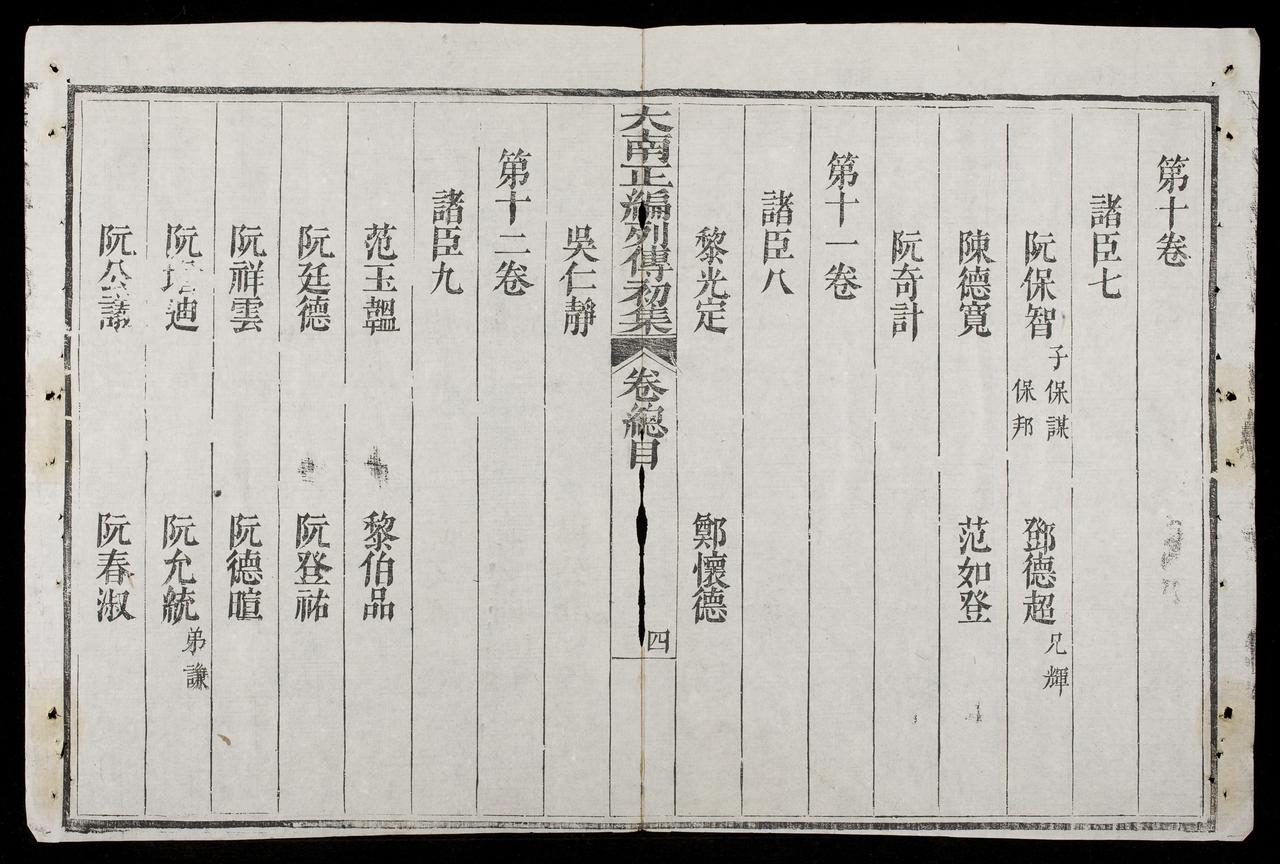 第十卷
諸臣七
阮保智 子保謀 保邦 鄧德超 兄輝
陳德寬 范如登
阮奇計
第十一卷
諸臣八
黎光定 鄭懷德
大南正編列傳初集 卷總目 四
吳仁靜
第十二卷
諸臣九
范玉韞 黎伯品
阮廷德 阮登祐
阮祥雲 阮德暄
阮 迪 阮允統 弟謙
阮公議 阮春淑